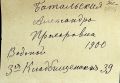 Батальский
Александра
Прохоровна
1900
Водопой
3я Кладбищенская, 39